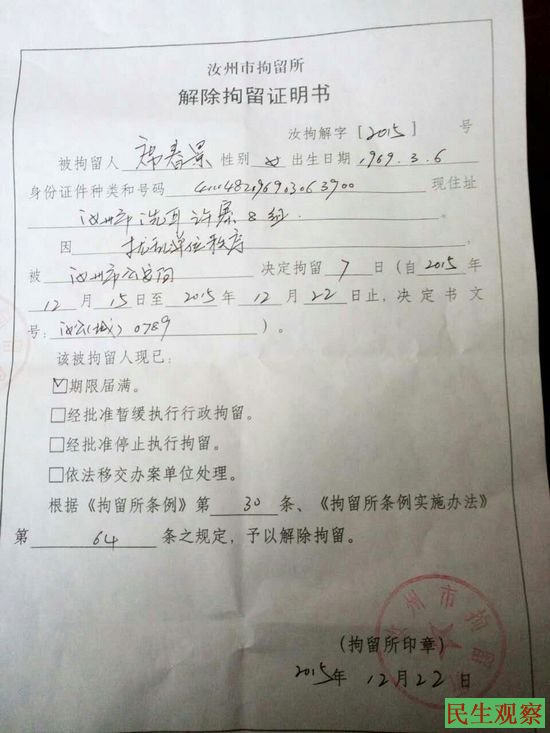 汝州市拘留所
解除拘留证明书
汝拘解字[2015] 号
被拘留人 席春景 性别 女 出生日期 1969.3.6
身份证件种类和号码 现住址
汝州市洗耳许寨8组。
因 扰乱单位秩序,
被 汝州市公安局 决定拘留 7 日(自2015年
12月15日至2015年12月22日止,决定书文
号:汝公(城)0789)。
该被拘留人现已:
☑期限届满。
□经批准暂缓执行行政拘留。
□经批准停止执行拘留。
□依法移交办案单位处理。
根据《拘留所条例》第 30 条、《拘留所条例实施办法》
第 64 条之规定,予以解除拘留。
汝州市拘留所
(拘留所印章)
2015年12月22日
民生观察